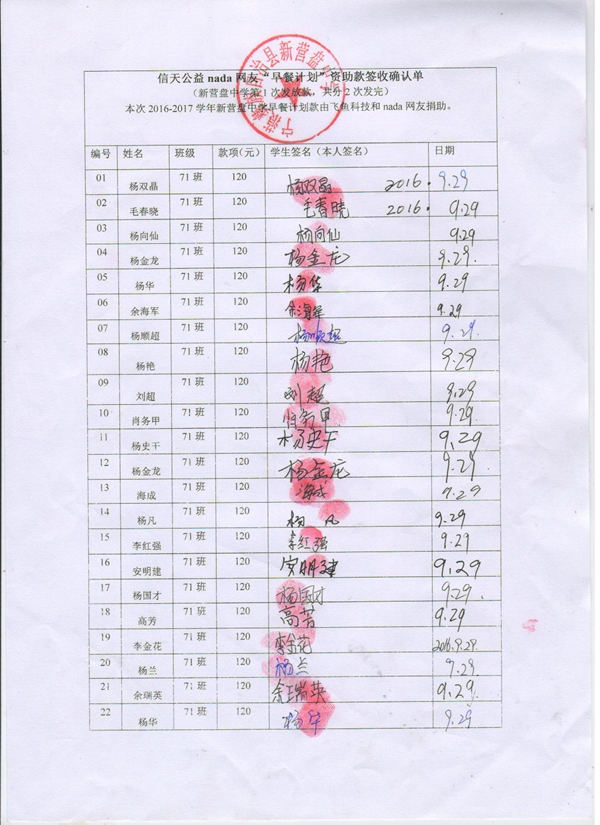 信天公益 nada 网友“早餐计划”资助款签收确认单
（新营盘中学第 1 次发放款，共分 2 次发完）
本次 2016-2017 学年新营盘中学早餐计划款由飞鱼科技和 nada 网友捐助。
编号 姓名 班级 款项（元） 学生签名（本人签名） 日期
01 杨双晶 71 班 120 杨双晶 2016. 9.29
02 毛春晓 71 班 120 毛春晓 2016. 9.29
03 杨向仙 71 班 120 杨向仙 9.29
04 杨金龙 71 班 120 杨金龙 9.29.
05 杨华 71 班 120 杨华 9.29
06 余海军 71 班 120 余海军 9.29
07 杨顺超 71 班 120 杨顺超 9.29.
08 杨艳 71 班 120 杨艳 9.29
09 刘超 71 班 120 刘超 9.29
10 肖务甲 71 班 120 肖务甲 9.29.
11 杨史干 71 班 120 杨史干 9.29
12 杨金龙 71 班 120 杨金龙 9.29
13 海成 71 班 120 海成 9.29
14 杨凡 71 班 120 杨凡 9.29
15 李红强 71 班 120 李红强 9.29
16 安明建 71 班 120 安明建 9.29
17 杨国才 71 班 120 杨国才 9.29
18 高芳 71 班 120 高芳 9.29
19 李金花 71 班 120 李金花 2016.9.29.
20 杨兰 71 班 120 杨兰 9.29.
21 余瑞英 71 班 120 余瑞英 9.29.
22 杨华 71 班 120 杨华 9.29